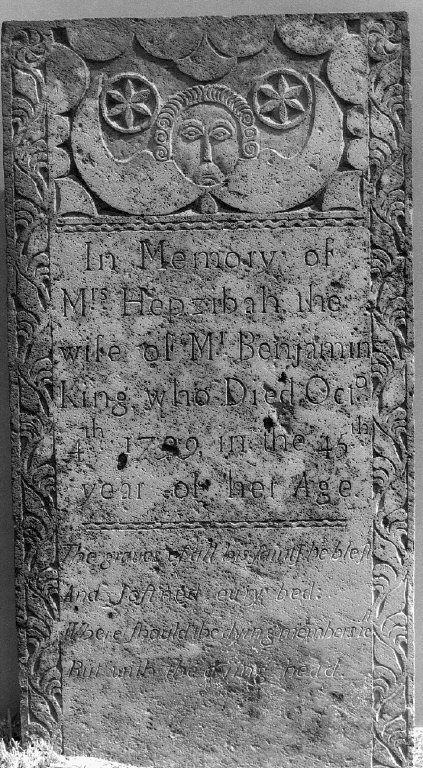 In Memory of
Mrs Hepzibah the
wife of Mr Benjamin
King who Died Octo
4th 1789 in the 45th
year of her Age
The graves of all his saints he blest
And softned every bed:
Where should the dying members
But with the dying head